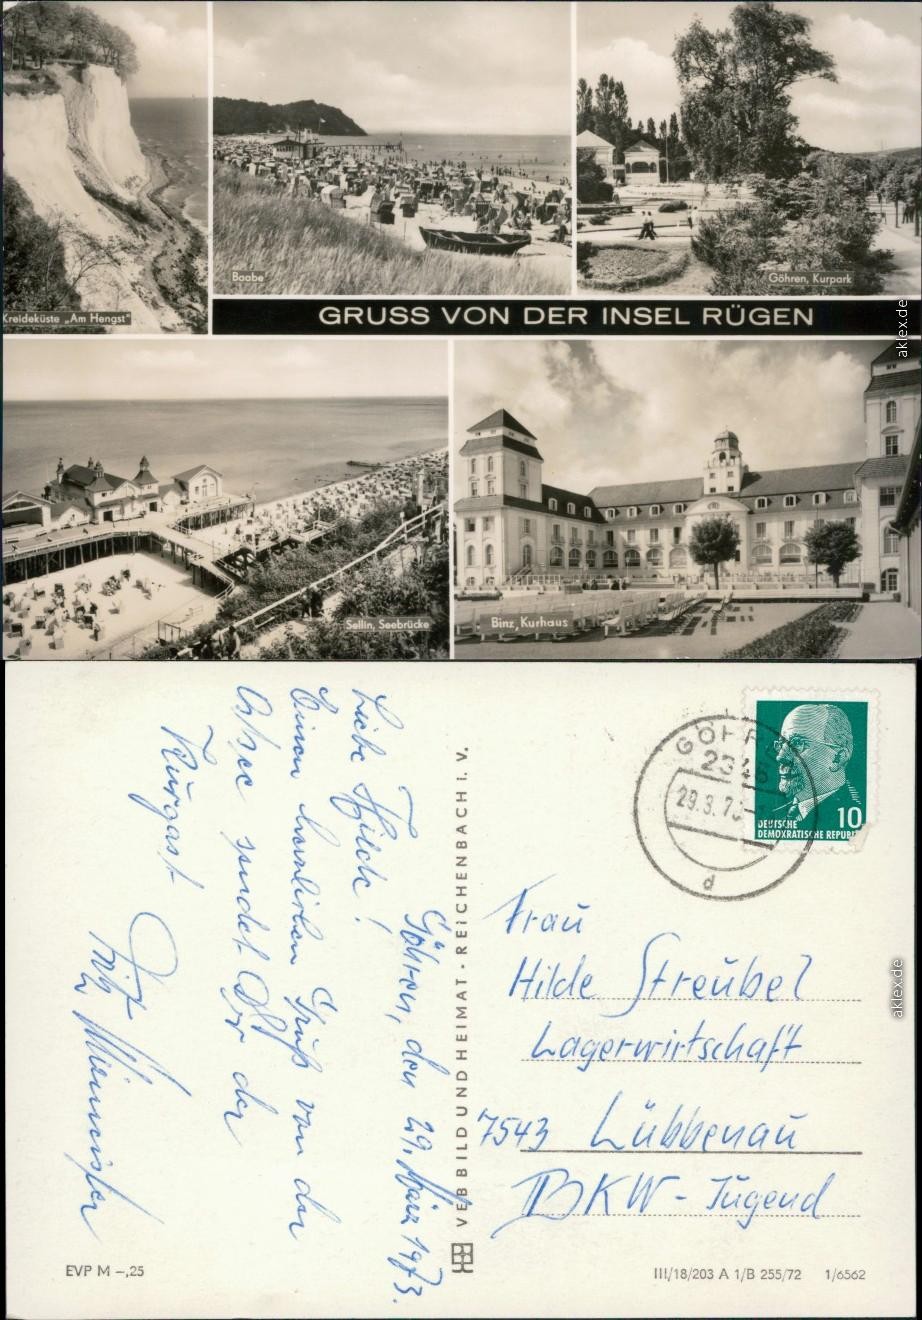 Kreideküste „Am Hengst"
Baabe
Göhren, Kurpark
GRUSS VON DER INSEL RÜGEN
aklex.de
Sellin, Seebrücke
Binz, Kurhaus
Göhren, den 29. März 1973.
Liebe Hilde!
Einen herzlichen Gruß von der
Ostsee sendet Dir der
Kurgast
Fritz
VEB BILD UND HEIMAT · REICHENBACH i. V.
GÖHREN
2345
29.3.73
d
10
DEUTSCHE
DEMOKRATISCHE REPUBLIK
Frau
Hilde Streubel
Lagerwirtschaft
7543 Lübbenau
BKW - Jugend
aklex.de
EVP M –,25
III/18/203 A 1/B 255/72 1/6562